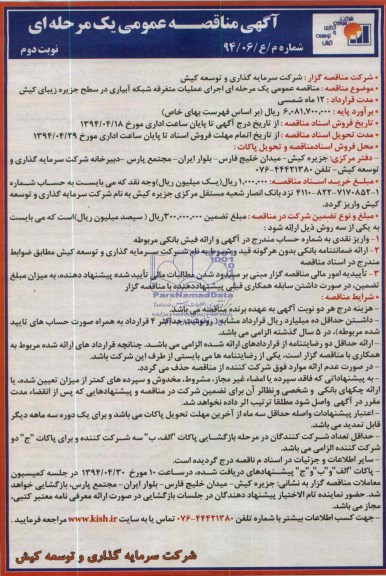 آگهی مناقصه عمومی یک مرحله ای
شماره م/ع/۹۴/۰۶
نوبت دوم
شرکت مناقصه گزار: شرکت سرمایه گذاری و توسعه کیش
موضوع مناقصه: مناقصه عمومی یک مرحله ای اجرای عملیات متفرقه شبکه آبیاری در سطح جزیره زیبای کیش
مدت قرارداد: ۱۲ ماه شمسی
برآورد پایه: ۶،۰۸۱،۷۰۰،۰۰۰ ریال (بر اساس فهرست بهای خاص)
تاریخ فروش اسناد مناقصه: از تاریخ درج آگهی تا پایان ساعت اداری مورخ ۱۳۹۴/۰۴/۱۸
مدت تحویل اسناد مناقصه: از تاریخ اتمام مهلت فروش اسناد تا پایان ساعت اداری مورخ ۱۳۹۴/۰۴/۲۹
محل فروش اسناد مناقصه و تحویل پاکات:
- دفتر مرکزی: جزیره کیش- میدان خلیج فارس- بلوار ایران- مجتمع پارس -دبیرخانه شرکت سرمایه گذاری و
توسعه کیش - تلفن ۴۴۴۲۱۳۸۰-۰۷۶
مبلغ خرید اسناد مناقصه: ۱،۰۰۰،۰۰۰ ریال(یک میلیون ریال)وجه نقد که می بایست به حساب شماره
۴۱۱۰-۸۲۲-۷۱۷۰۸۵۲-۱ نزد بانک انصار شعبه مستقل مرکزی جزیره کیش به نام شرکت سرمایه گذاری و توسعه
کیش واریز گردد.
مبلغ و نوع تضمین شرکت در مناقصه: مبلغ تضمین ۳۰۰،۰۰۰،۰۰۰ریال (سیصد میلیون ریال)است که می بایست
به یکی از سه روش ذیل ارائه شود:
۱-واریز نقدی به شماره حساب مندرج در آگهی و ارائه فیش بانکی مربوطه
۲- ارائه ضمانتنامه بانکی بدون هرگونه قید وشرط به نام شرکت سرمایه گذاری و توسعه کیش مطابق ضوابط
مندرج در اسناد مناقصه
۳- تأییدیه امور مالی مناقصه گزار مبنی بر مسدود شدن مطالبات مالی تأیید شده پیشنهاد دهنده، به میزان مبلغ
تضمین، در صورت داشتن سابقه همکاری قبلی پیشنهاددهنده با مناقصه گزار
شرایط مناقصه:
- هزینه درج هر دو نوبت آگهی به عهده برنده مناقصه می باشد.
- داشتن حداقل ده میلیارد ریال قرارداد مشابه، رونوشت حداکثر ۴ قرارداد به همراه صورت حساب های تایید
شده مربوطه)، در ۵ سال گذشته الزامی می باشد.
- ارائه حداقل دو رضایتنامه از قراردادهای ارائه شده الزامی می باشد. چنانچه قرارداد های ارائه شده مربوط به
همکاری با مناقصه گزار است، یکی از رضایتنامه ها می بایستی از طرف این شرکت باشد.
- در صورت عدم ارائه موارد فوق شرکت کننده از مناقصه حذف می گردد.
- به پیشنهاداتی که فاقد سپرده یا امضاء غیر مجاز، مشروط، مخدوش و سپرده های کمتر از میزان تعیین شده، یا
ارائه چکهای بانکی و شخصی و نظائر آن برای تضمین شرکت در مناقصه و پیشنهادهایی که پس از انقضاء مدت
مقرر در آگهی واصل شود مطلقا ترتیب اثر داده نخواهد شد.
-اعتبار پیشنهادات واصله حداقل سه ماه از آخرین مهلت تحویل پاکات می باشد و برای یک دوره سه ماهه دیگر
قابل تمدید می باشد.
-حداقل تعداد شرکت کنندگان در مرحله بازگشایی پاکات "الف، ب" سه شرکت کننده و برای پاکات "ج" دو
شرکت کننده الزامی می باشد.
- سایر اطلاعات و جزئیات در اسناد مناقصه درج گردیده است.
- پاکات "الف"و"ب"و"ج" پیشنهادهای دریافت شده، درساعت ۱۰ مورخ ۱۳۹۴/۰۴/۳۰ در جلسه کمیسیون
معاملات مناقصه گزار به نشانی: جزیره کیش- میدان خلیج فارس- بلوار ایران- مجتمع پارس، بازگشایی خواهد
شد. حضور نماینده تام الاختیار پیشنهاد دهندگان در جلسات بازگشایی در صورت ارائه معرفی نامه معتبر کتبی،
مجاز می باشد.
- جهت کسب اطلاعات بیشتر با شماره تلفن ۴۴۴۲۱۳۸۰-۰۷۶ تماس یا به سایت www.kish.ir مراجعه فرمایید.
شرکت سرمایه گذاری و توسعه کیش